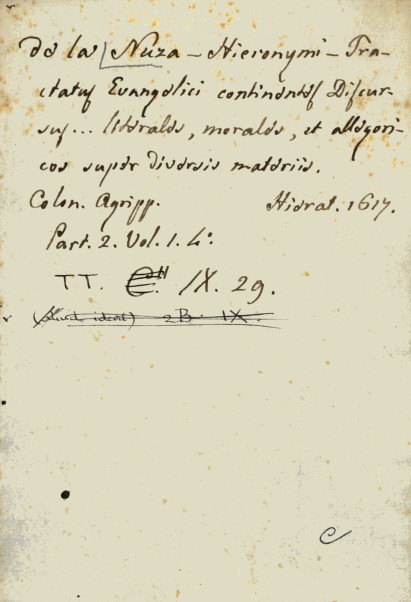 de la Nuza – Hieronymi – Tra-
ctatus Evangelici continentes Discur-
sus... literales, morales, et allegori-
cos super diversis materiis.
Colon. Agripp. Hierat. 1617.
Part. 2. Vol. 1. 4°.
TT. IX. 29.
2B IX.
C